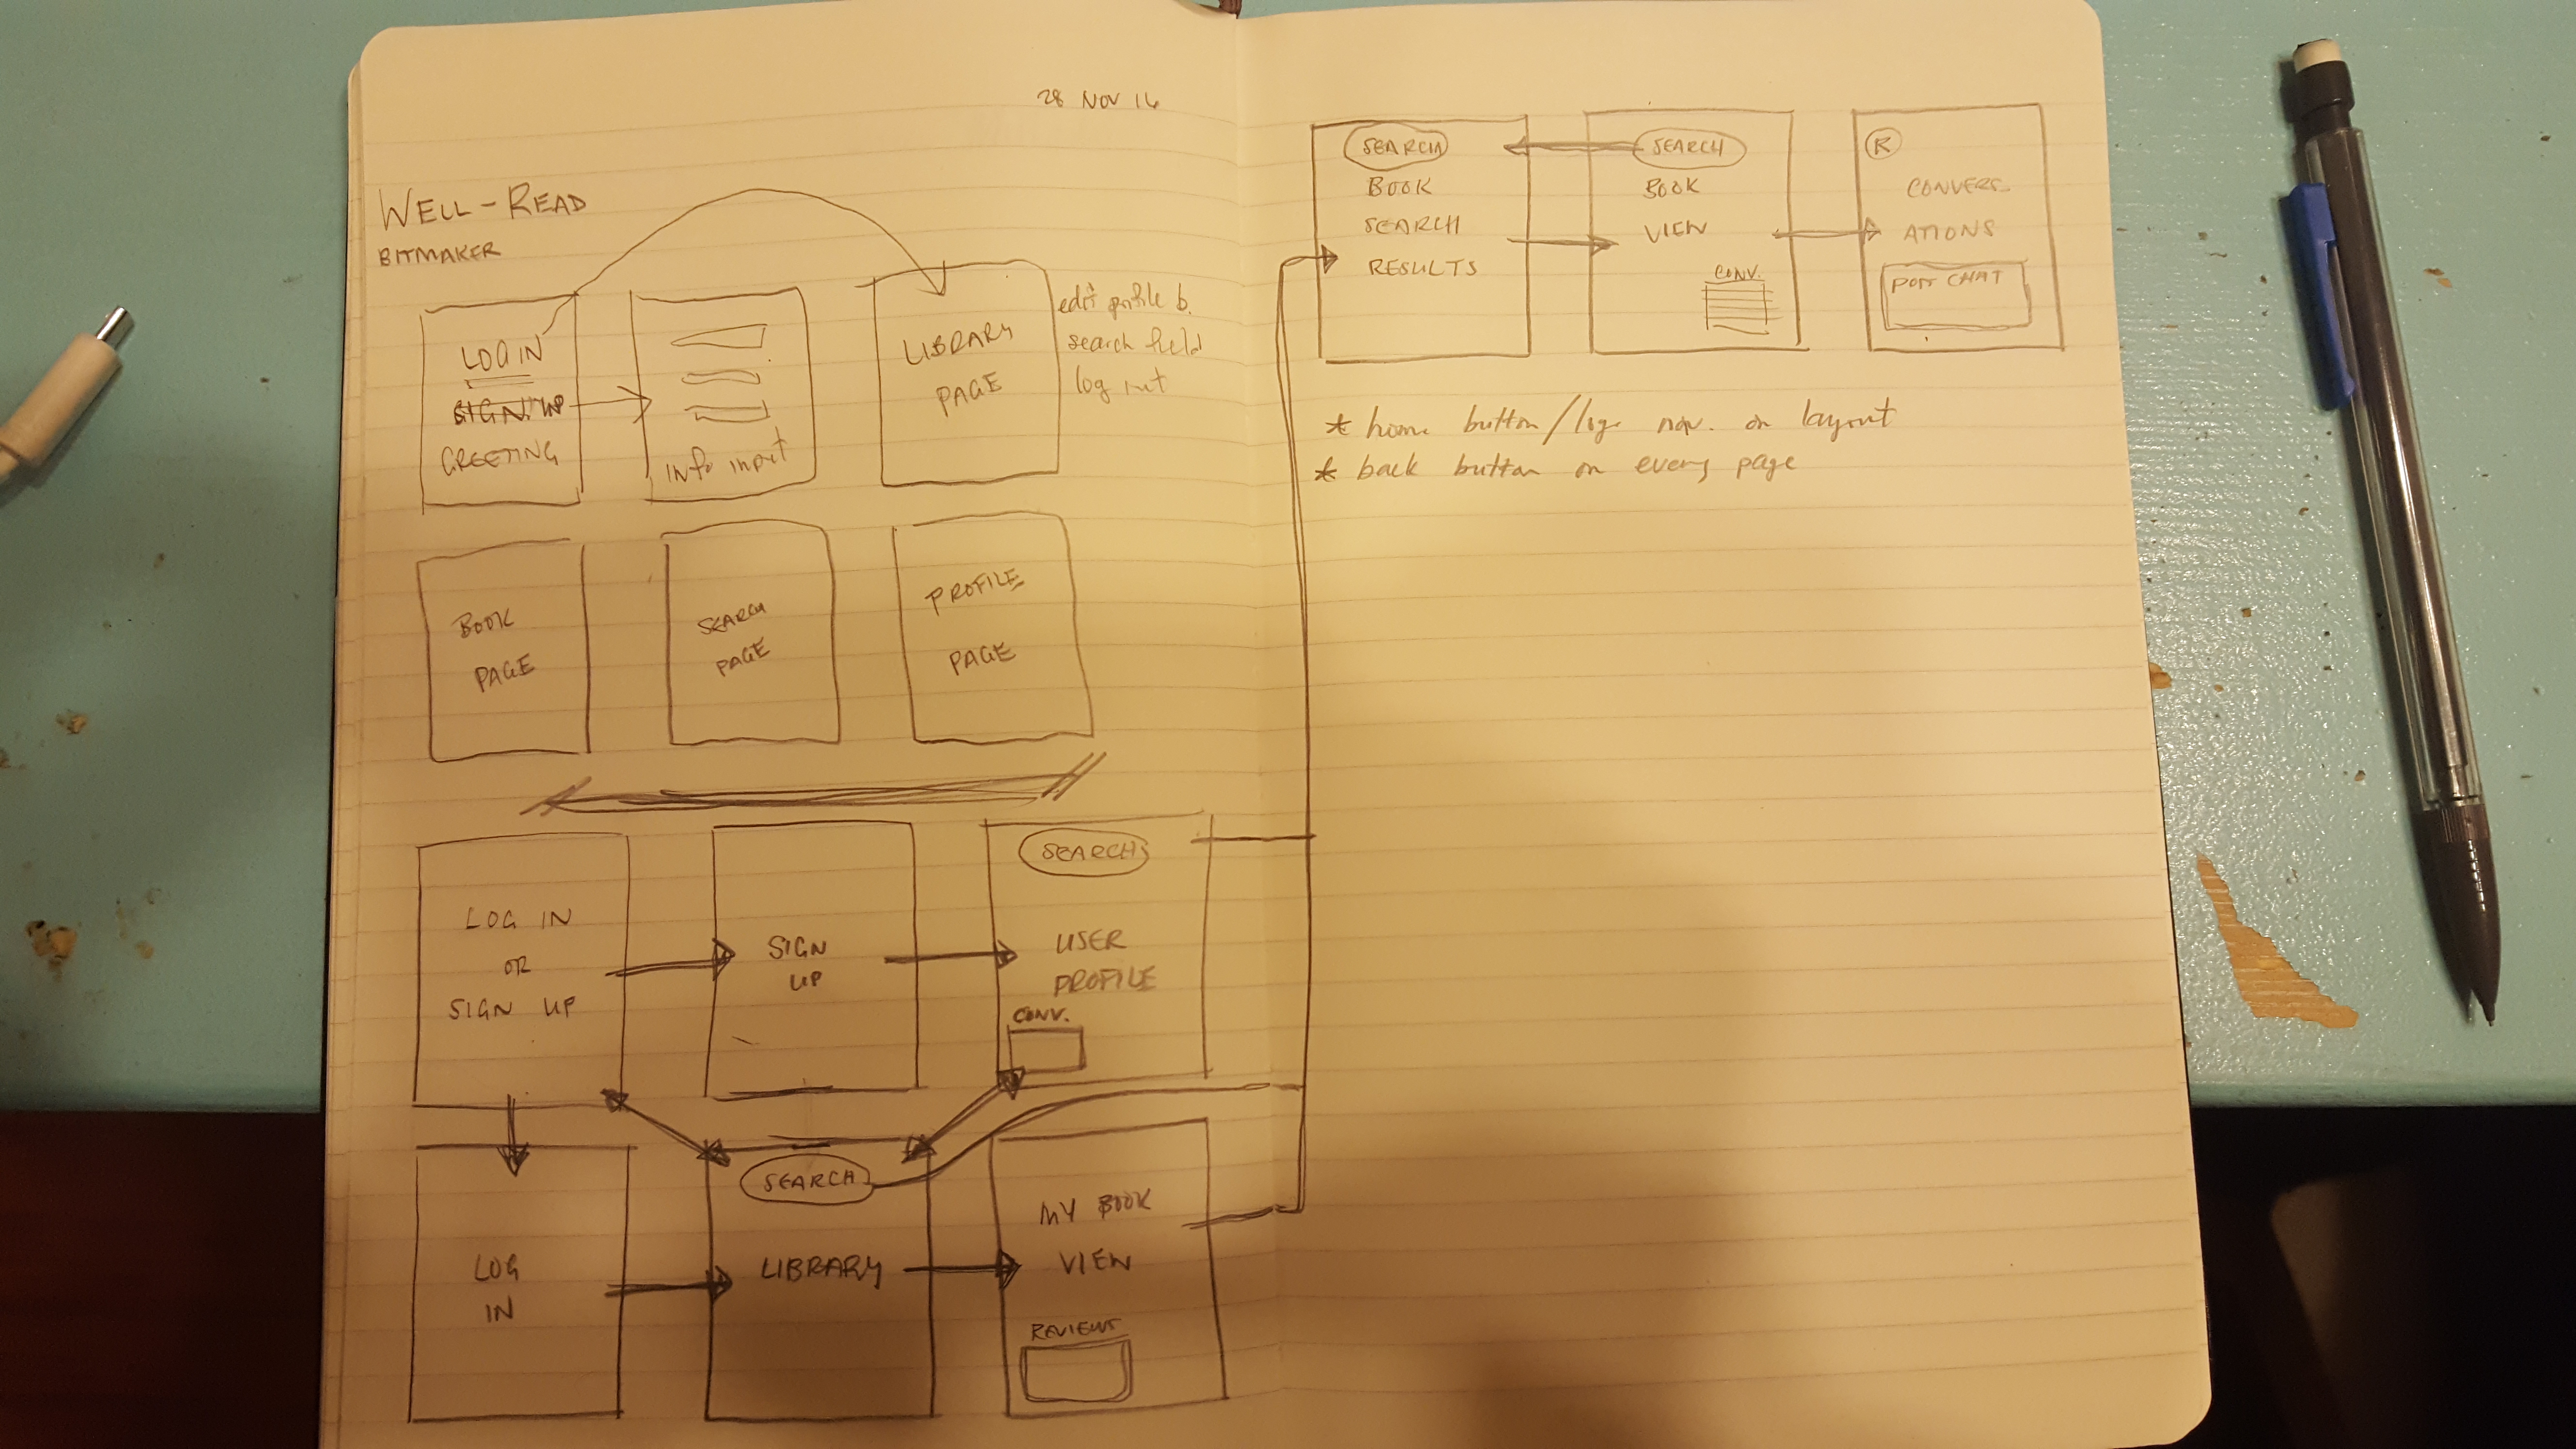 28 NOV 16
WELL-READ
BITMAKER
LOG IN
SIGN UP
GREETING
info input
LIBRARY
PAGE
edit profile b.
search field
log out
BOOK
PAGE
SEARCH
PAGE
PROFILE
PAGE
LOG IN
OR
SIGN UP
SIGN
UP
SEARCH
USER
PROFILE
CONV.
LOG
IN
SEARCH
LIBRARY
MY BOOK
VIEW
REVIEWS
SEARCH
BOOK
SEARCH
RESULTS
SEARCH
BOOK
VIEW
CONV.
R
CONVERS-
ATIONS
POST CHAT
* home button/logo nav. on layout
* back button on every page